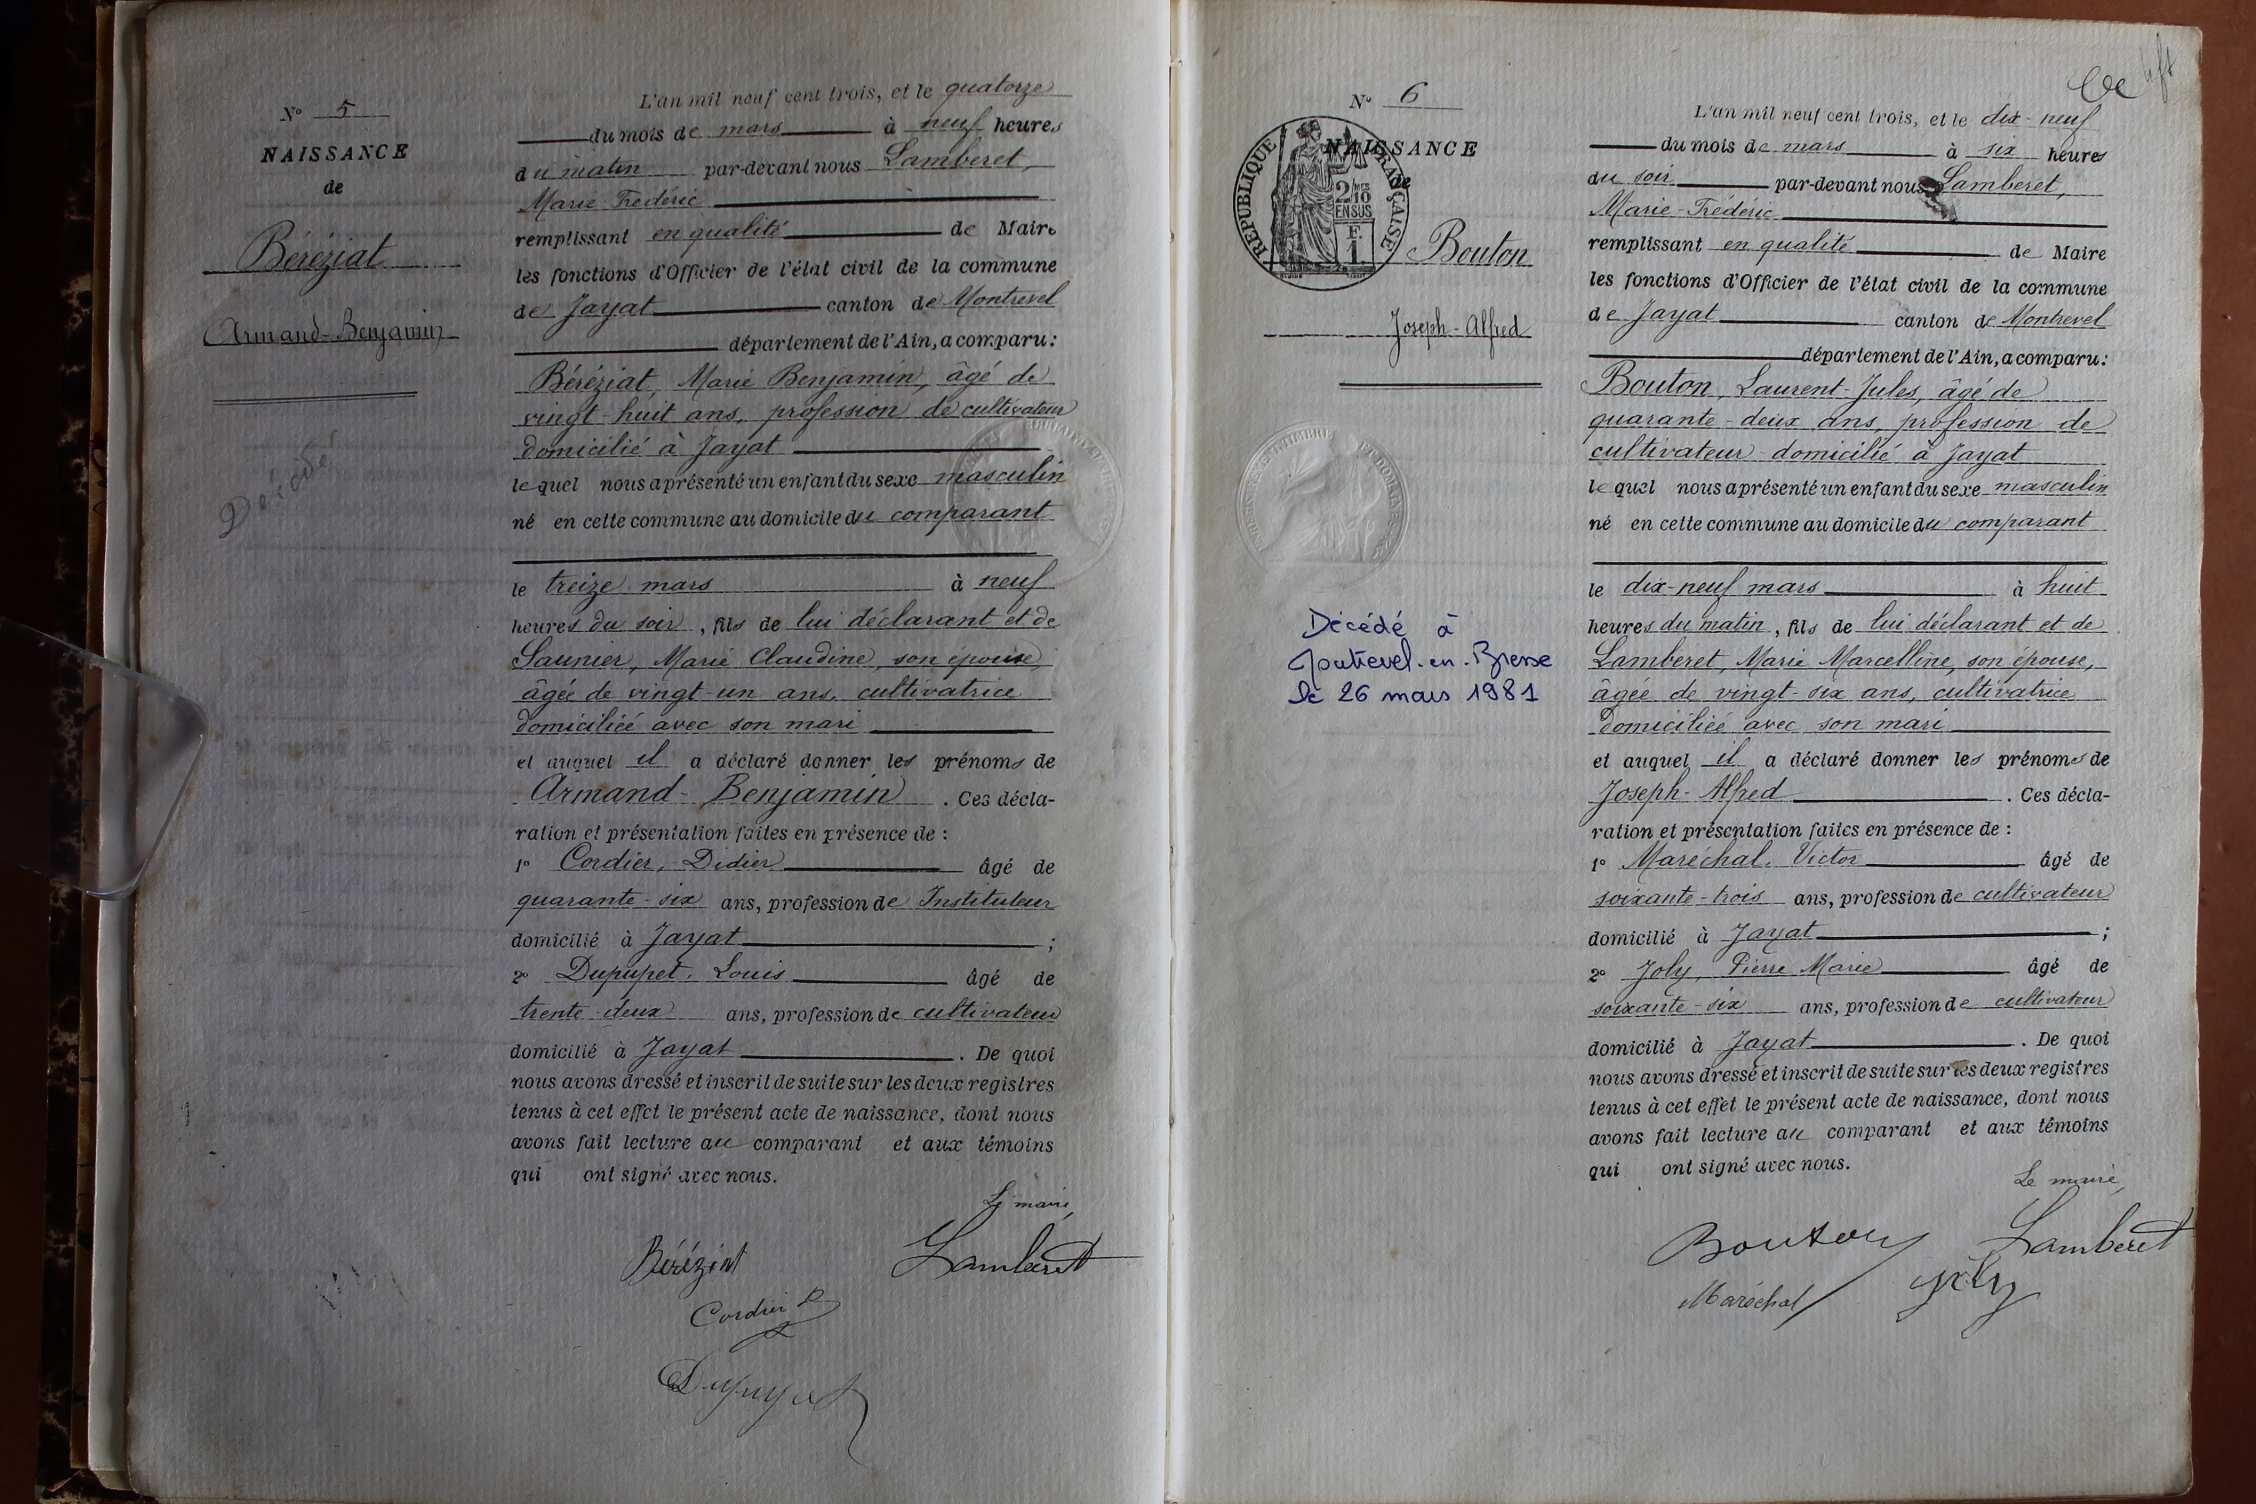 N° 5
NAISSANCE
de
Béréziat
Armand-Benjamin
Décédé
L'an mil neuf cent trois, et le quatorze
du mois de mars à neuf heures
du matin par-devant nous Lamberet,
Marie Frédéric
remplissant en qualité de Maire
les fonctions d'Officier de l'état civil de la commune
de Jayat canton de Montrevel
département de l'Ain, a comparu :
Béréziat, Marie Benjamin, âgé de
vingt-huit ans, profession de cultivateur
domicilié à Jayat
lequel nous a présenté un enfant du sexe masculin
né en cette commune au domicile du comparant
le treize mars à neuf
heures du soir, fils de lui déclarant et de
Saunier, Marie Claudine, son épouse,
âgée de vingt-un ans, cultivatrice
domiciliée avec son mari
et auquel il a déclaré donner les prénoms de
Armand-Benjamin. Ces décla-
ration et présentation faites en présence de :
1° Cordier, Didier âgé de
quarante-six ans, profession de Instituteur
domicilié à Jayat ;
2° Dupupet, Louis âgé de
trente-deux ans, profession de cultivateur
domicilié à Jayat. De quoi
nous avons dressé et inscrit de suite sur les deux registres
tenus à cet effet le présent acte de naissance, dont nous
avons fait lecture au comparant et aux témoins
qui ont signé avec nous.
Le maire,
Béréziat Lamberet
Cordier D
Dupupet
N° 6
NAISSANCE
de
RÉPUBLIQUE FRANÇAISE
2/10 MES
EN SUS
F.
1.
Bouton
Joseph-Alfred
Décédé à
Montrevel-en-Bresse
le 26 mars 1981
L'an mil neuf cent trois, et le dix-neuf
du mois de mars à six heures
du soir par-devant nous Lamberet,
Marie-Frédéric
remplissant en qualité de Maire
les fonctions d'Officier de l'état civil de la commune
de Jayat canton de Montrevel
département de l'Ain, a comparu :
Bouton, Laurent-Jules, âgé de
quarante-deux ans, profession de
cultivateur domicilié à Jayat
lequel nous a présenté un enfant du sexe masculin
né en cette commune au domicile du comparant
le dix-neuf mars à huit
heures du matin, fils de lui déclarant et de
Lamberet, Marie Marcelline, son épouse,
âgée de vingt-six ans, cultivatrice
domiciliée avec son mari
et auquel il a déclaré donner les prénoms de
Joseph-Alfred. Ces décla-
ration et présentation faites en présence de :
1° Maréchal, Victor âgé de
soixante-trois ans, profession de cultivateur
domicilié à Jayat ;
2° Joly, Pierre Marie âgé de
soixante-six ans, profession de cultivateur
domicilié à Jayat. De quoi
nous avons dressé et inscrit de suite sur les deux registres
tenus à cet effet le présent acte de naissance, dont nous
avons fait lecture au comparant et aux témoins
qui ont signé avec nous.
Le maire,
Bouton Lamberet
Maréchal Joly